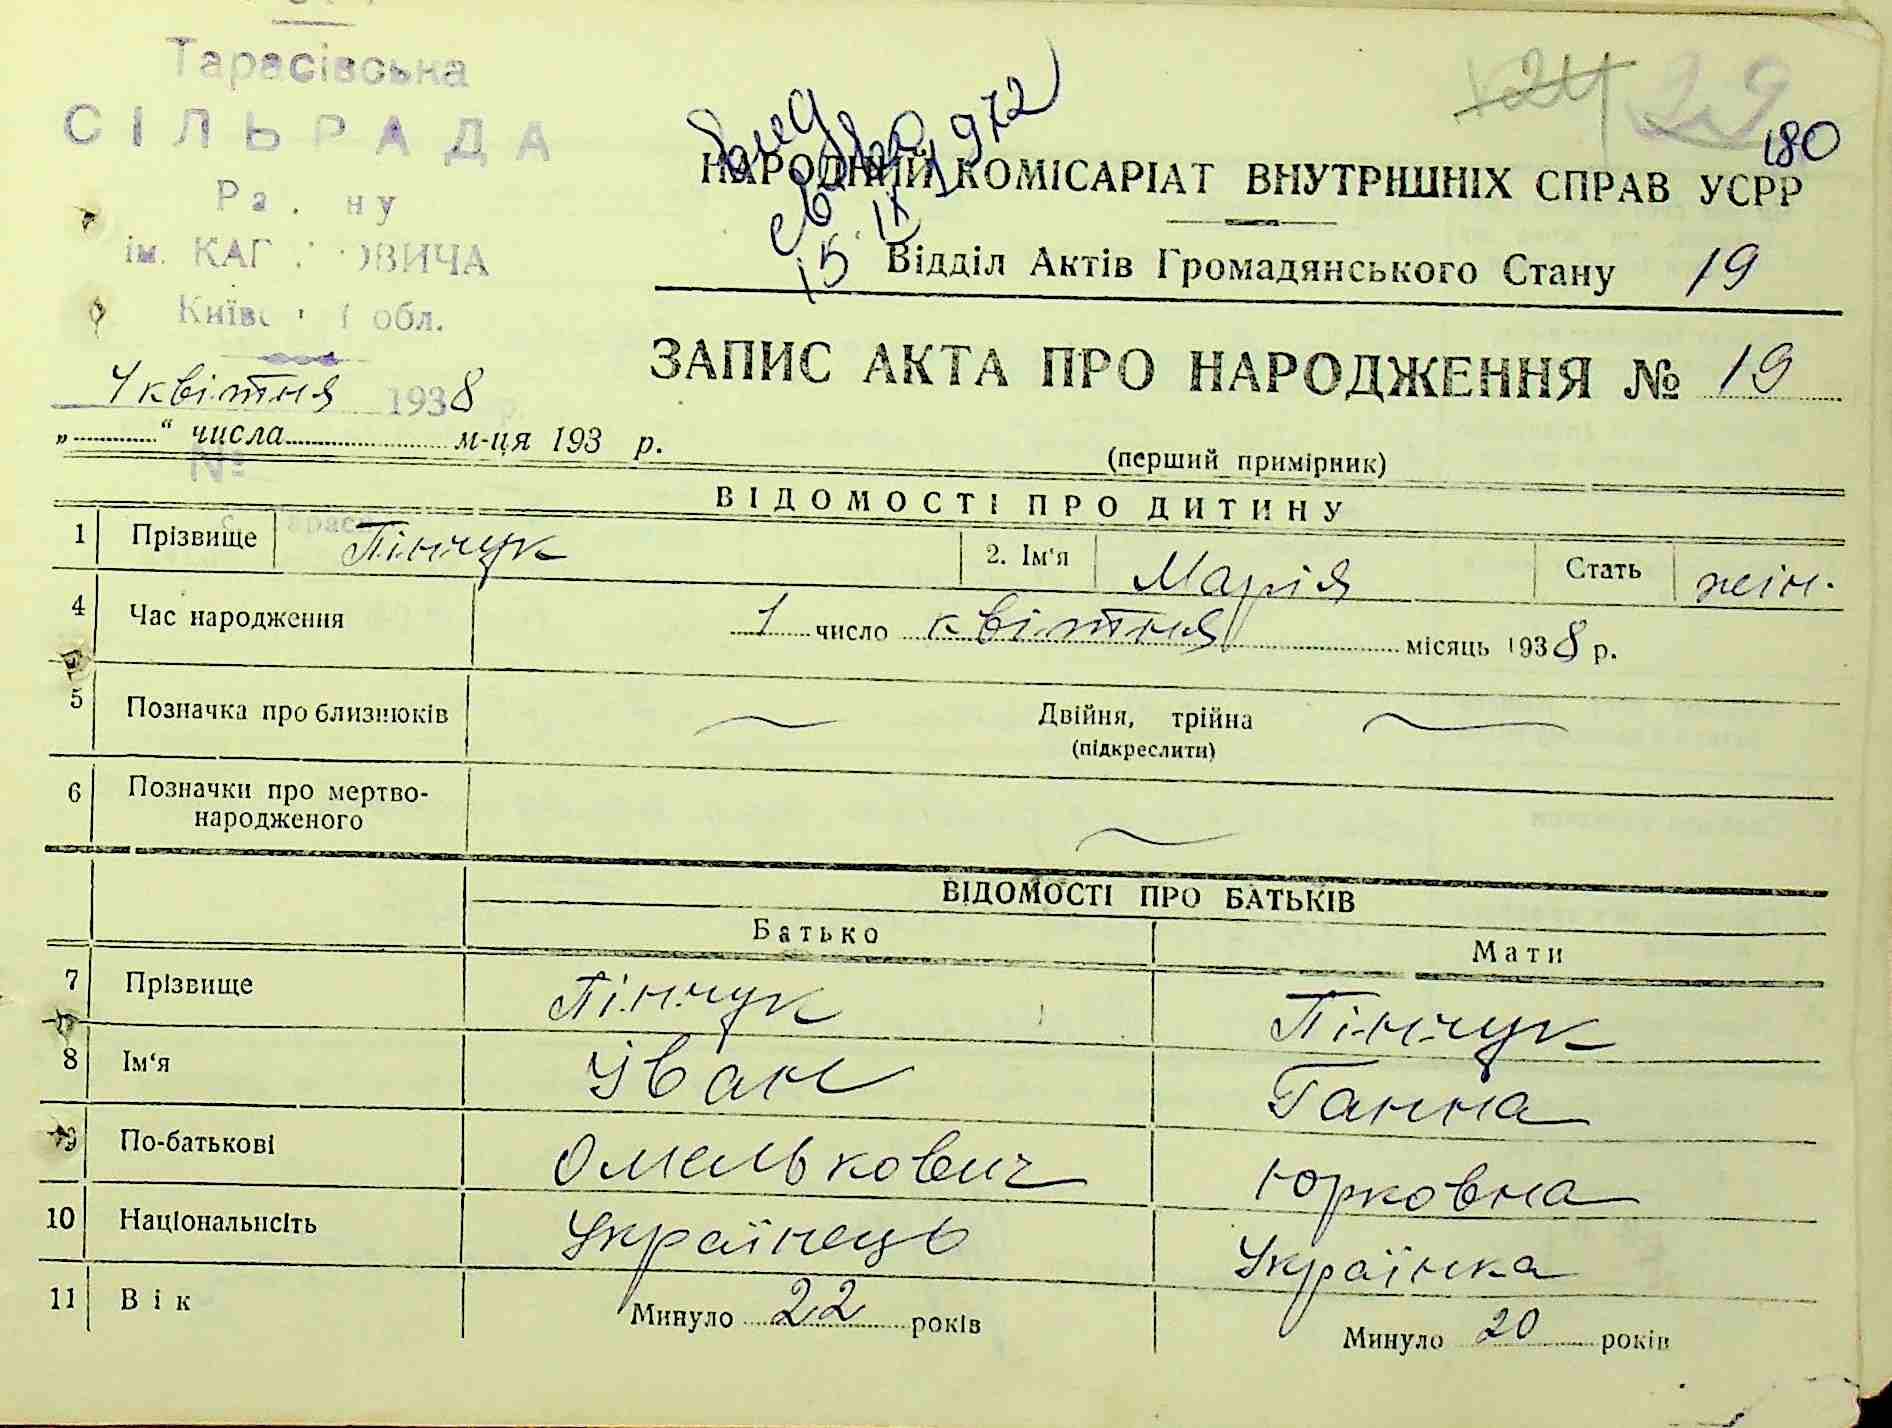 Тарасівська
СІЛЬРАДА
ім.
обл.
4 квітня 1938 р.
№
1972
15 IX
24
29
180
НАРОДНИЙ КОМІСАРІАТ ВНУТРІШНІХ СПРАВ УСРР
Відділ Актів Громадянського Стану 19
ЗАПИС АКТА ПРО НАРОДЖЕННЯ № 19
„ “ числа м-ця 193 р.
(перший примірник)
ВІДОМОСТІ ПРО ДИТИНУ
1 Прізвище Пінчук 2. Ім'я Марія Стать жін.
4 Час народження 1 число квітня місяць 1938 р.
5 Позначка про близнюків Двійня, трійна
(підкреслити)
6 Позначки про мертво-
народженого
ВІДОМОСТІ ПРО БАТЬКІВ
Батько Мати
7 Прізвище Пінчук Пінчук
8 Ім'я Іван Ганна
9 По-батькові Омелькович Юрковна
10 Національність Українець Українка
11 Вік Минуло 22 років Минуло 20 років